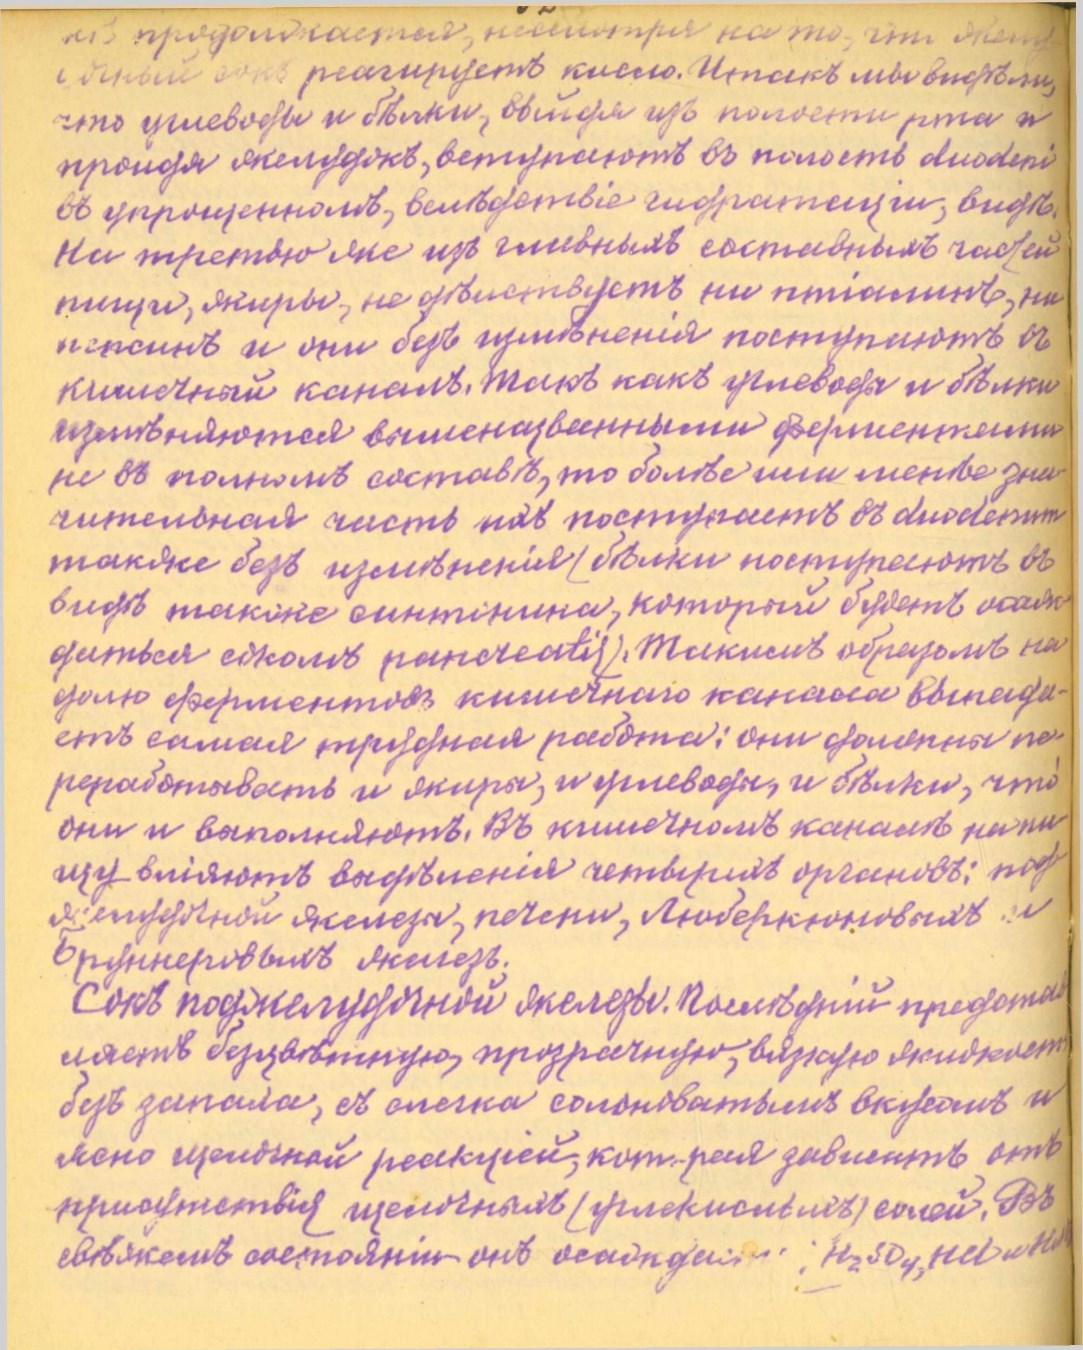 продолжается, несмотря на то, что желу-
дочный сокъ реагируетъ кисло. Итакъ мы видѣли,
что углеводы и бѣлки, выйдя изъ полости рта и
пройдя желудокъ, вступаютъ въ полость duodeni
въ упрощенномъ, вслѣдствіе гидратаціи, видѣ.
На третью же изъ главныхъ составныхъ частей
пищи, жиры, не дѣйствуетъ ни птіалинъ, ни
пепсинъ и они безъ измѣненія поступаютъ въ
кишечный каналъ. Такъ какъ углеводы и бѣлки
измѣняются вышеназванными ферментами
не въ полномъ составѣ, то болѣе или менѣе зна-
чительная часть ихъ поступаетъ въ duodenum
также безъ измѣненія (бѣлки поступаютъ въ
видѣ также синтонина, который будетъ осаж-
даться сокомъ pancreatis). Такимъ образомъ на
долю ферментовъ кишечнаго канала выпада-
етъ самая трудная работа: они должны пе-
рерабатывать и жиры, и углеводы, и бѣлки, что
они и выполняютъ. Въ кишечномъ каналѣ на пи-
щу вліяютъ выдѣленія четырехъ органовъ: под-
желудочной железы, печени, Люберкюновыхъ и
Бруннеровыхъ железъ.
Сокъ поджелудочной железы. Послѣдній представ-
ляетъ безцвѣтную, прозрачную, вязкую жидкость
безъ запаха, съ слегка солоноватымъ вкусомъ и
ясно щелочной реакціей, которая зависитъ отъ
присутствія щелочныхъ (углекислыхъ) солей. Въ
свѣжемъ состояніи онъ осаждает H₂SO₄, HCl и